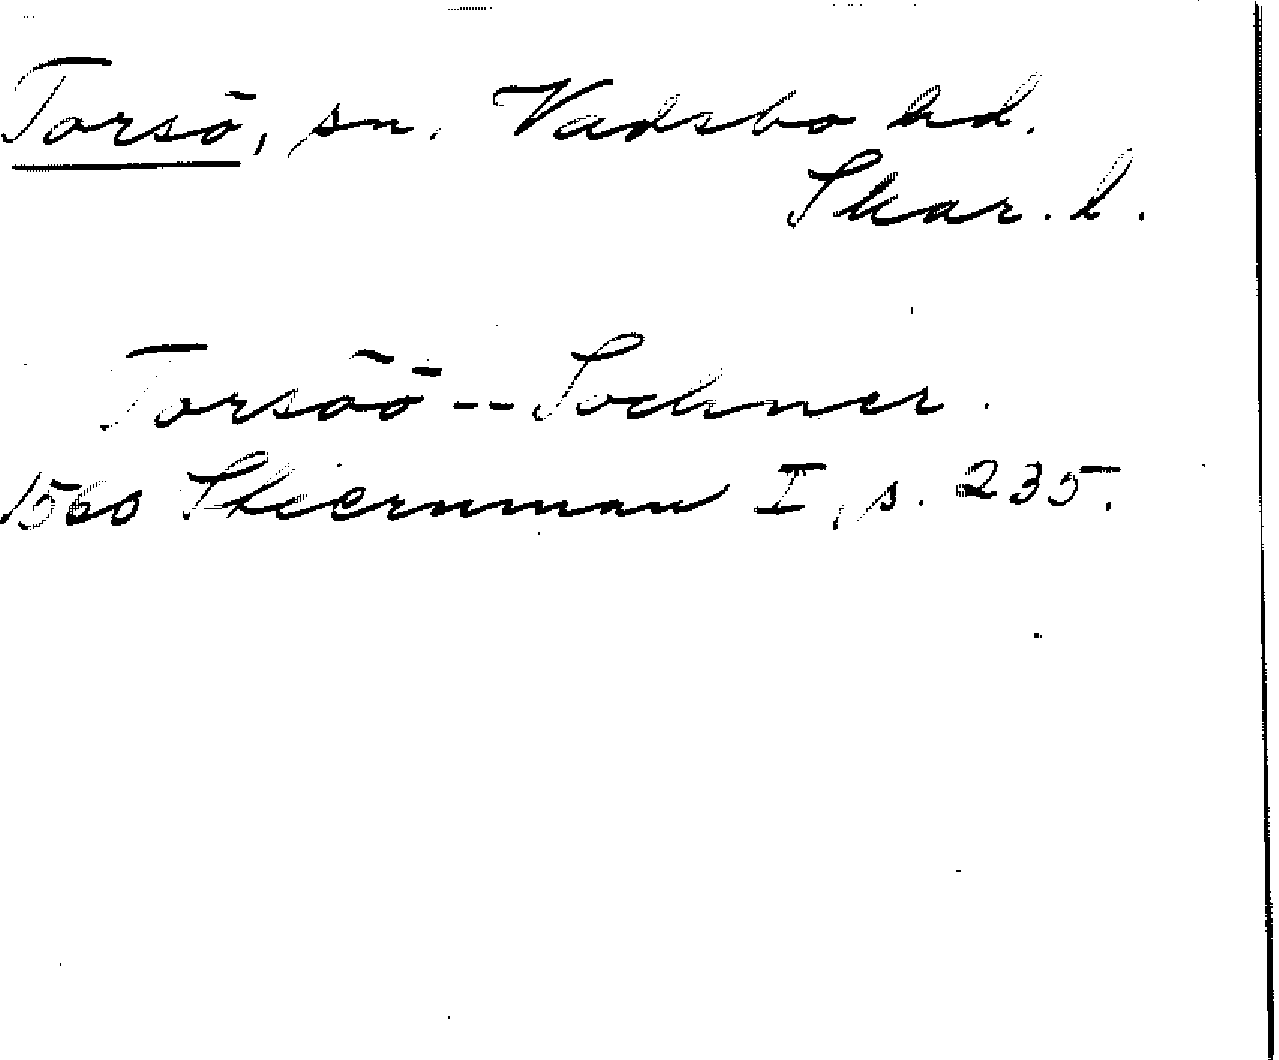 Torsö, sn. Vadsbo hd.
Skar. l.
Torsöö -- Sochner.
1560 Stiernman I, s. 235.